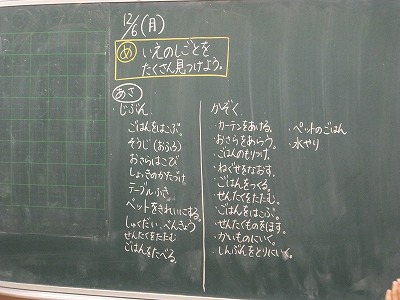 12/6(月)
め いえのしごとを
たくさん見つけよう。
あさ
じぶん
ごはんをはこぶ。
そうじ(おふろ)
おさらはこび
しょっきのかたづけ
テーブルふき
ベットをきれいにする。
しゅくだい、べんきょう
せんたくをたたむ
ごはんをたべる。
かぞく
・カーテンをあける。
・おさらをあらう。
・ごはんのもりつけ。
・ねぐせをなおす。
・ごはんをつくる。
・せんたくをたたむ。
・ごはんをはこぶ。
・せんたくものをほす。
・かいものにいく。
・しんぶんをとりにいく。
・ペットのごはん
・水やり